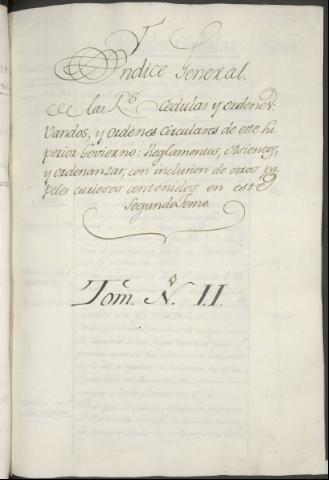 Yndice General.
de las R.s Cedulas y ordenes:
Vandos, y ordenes Circulares de este Su
perior Govierno: Reglamentos, Asientos,
y Ordenanzas, con inclusion de otros pa
peles curiosos contenidos en este
Segundo Tomo.
Tom. N.o II.